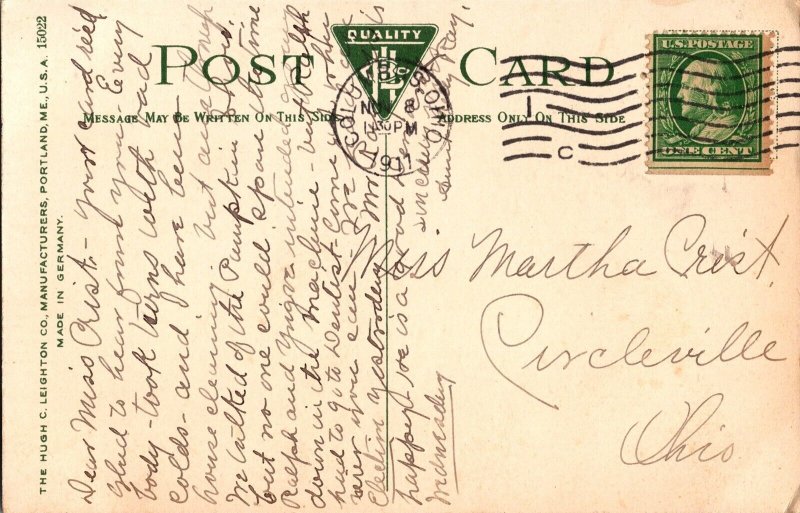 THE HUGH C. LEIGHTON CO., MANUFACTURERS, PORTLAND, ME., U.S.A. 15022
MADE IN GERMANY.
QUALITY
POST CARD
MESSAGE MAY BE WRITTEN ON THIS SIDE
ADDRESS ONLY ON THIS SIDE
NOV 8
PM
1911
OHIO
1
C
U.S. POSTAGE
ONE CENT
Dear Miss Crist. - Your card rec'd
Glad to hear from you - Every
body - took turns with bad
colds - and I have been
house cleaning but
We talked of the Pumpkin Show.
but no one could spare the time
Ralph and intended going
down in the machine - but Ralph
had to go to Dentist -
ever
Election yesterday
happy - he is a
Wednesday
Sincerely
Miss Martha Crist.
Circleville
Ohio